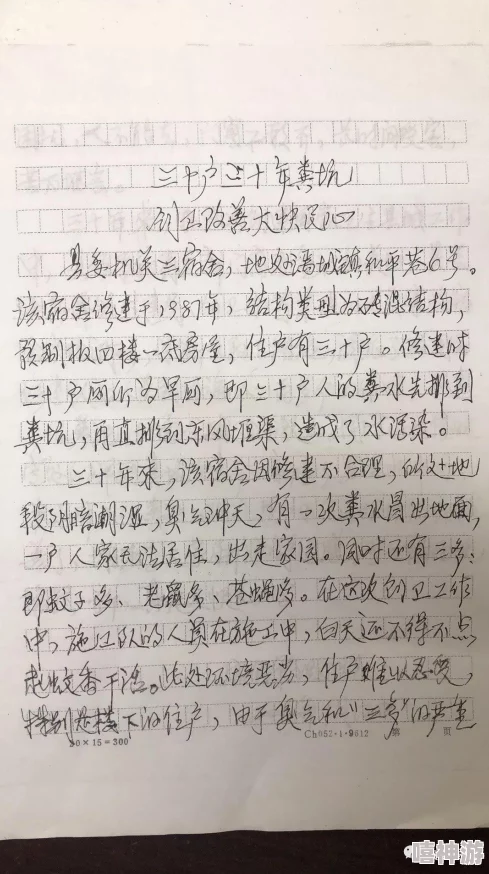 三十户三十年粪坑
创卫改善大快民心
县委机关三宿舍，地处漓城镇和平巷6号。
该宿舍修建于1987年，结构类型为砖混结构，
预制板四楼一底房屋，住户有三十户。修建时
三十户厕所为旱厕，即三十户人的粪水先排到
粪坑，再直排到东风堰渠，造成了水污染。
三十年来，该宿舍因修建不合理，所处地
段阴暗潮湿，臭气冲天，有一次粪水冒出地面，
一户人家无法居住，出走家园。同时还有三多：
即蚊子多、老鼠多、苍蝇多。在这次创卫工作
中，施工队的人员在施工中，白天还不得不点
起蚊香干活。此处环境恶劣，住户难以忍受，
特别是楼下的住户，由于臭气和“三多”的严重
20×15=300
Ch052·1·9812 第 页
嘻神游